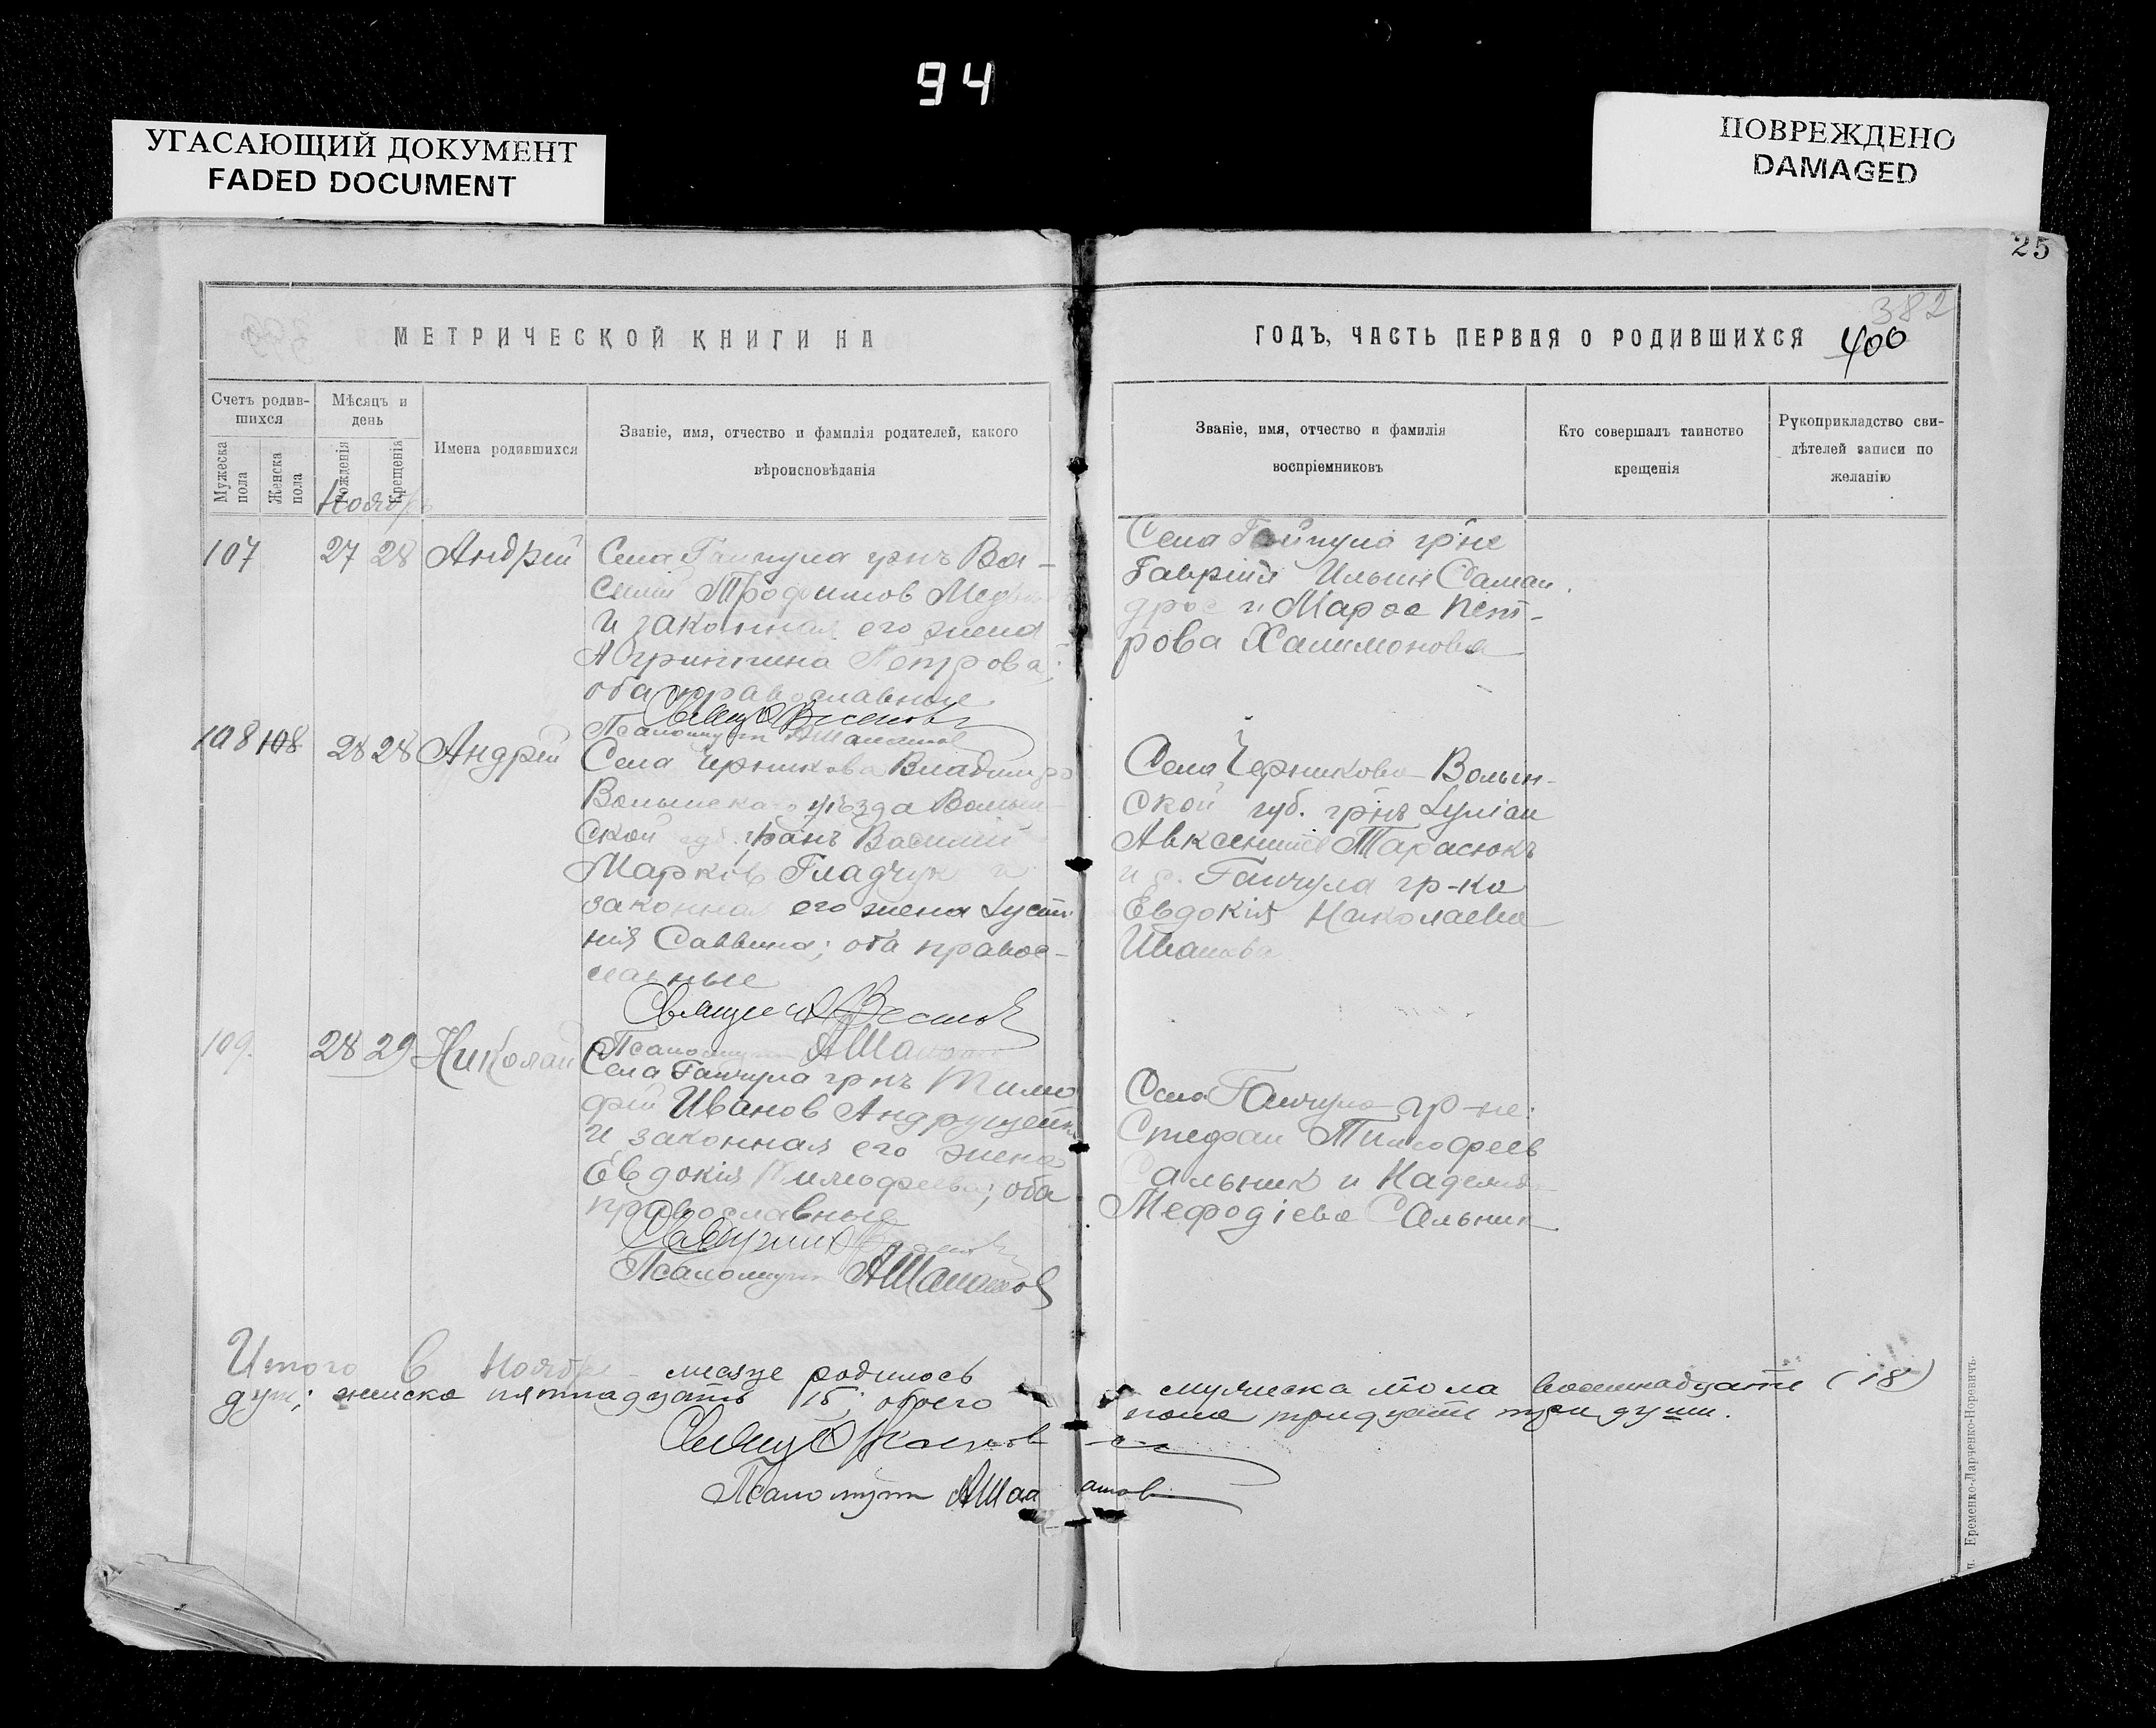 94
УГАСАЮЩИЙ ДОКУМЕНТ
FADED DOCUMENT
ПОВРЕЖДЕНО
DAMAGED
25
382
МЕТРИЧЕСКОЙ КНИГИ НА
ГОДЪ, ЧАСТЬ ПЕРВАЯ О РОДИВШИХСЯ 400
Счетъ родив-
шихся
Мужеска пола
Женска пола
Мѣсяцъ и
день
Рожденія
Крещенія
Имена родившихся
Званіе, имя, отчество и фамилія родителей, какого
вѣроисповѣданія
Званіе, имя, отчество и фамилія
воспріемниковъ
Кто совершалъ таинство
крещенія
Рукоприкладство сви-
дѣтелей записи по
желанію
Ноябрь
107 27 28 Андрей
Села Гайчула грнъ Ва-
силій Трофимов
и законная его жена
Петрова;
оба православные
Псаломщик
Села Гайчула грне
Гавріил Ильин
и Марѳа Пет-
рова Халимонова
108 108 28 28 Андрей
Села Черникова Владимиро
Волынскаго уѣзда Волын-
ской губ. Василій
Марков Гладчук и
законная его жена Іусти-
нія Саввина; оба правос-
лавные
Псаломщик
Села Черникова Волын-
ской губ. грнъ Іуліан
Авксентиев Тарасюкъ
и с. Гайчула гр-ка
Евдокія Николаева
Иванова
109. 28 29 Николай
Села Гайчула грнъ Тимо
фей Иванов
и законная его жена
Евдокія Тимофеева; оба
православные
Псаломщик
Села Гайчула гр-не:
Стефан Тимофеев
Сальник и Надежда
Мефодіева Сальник
Итого в Ноябре месяце родилось мужеска пола восемнадцать (18)
душ; женска пятнадцать 15; обоего пола тридцать три души.
Псаломщик
Еременко-Ларченко-Норевичъ.